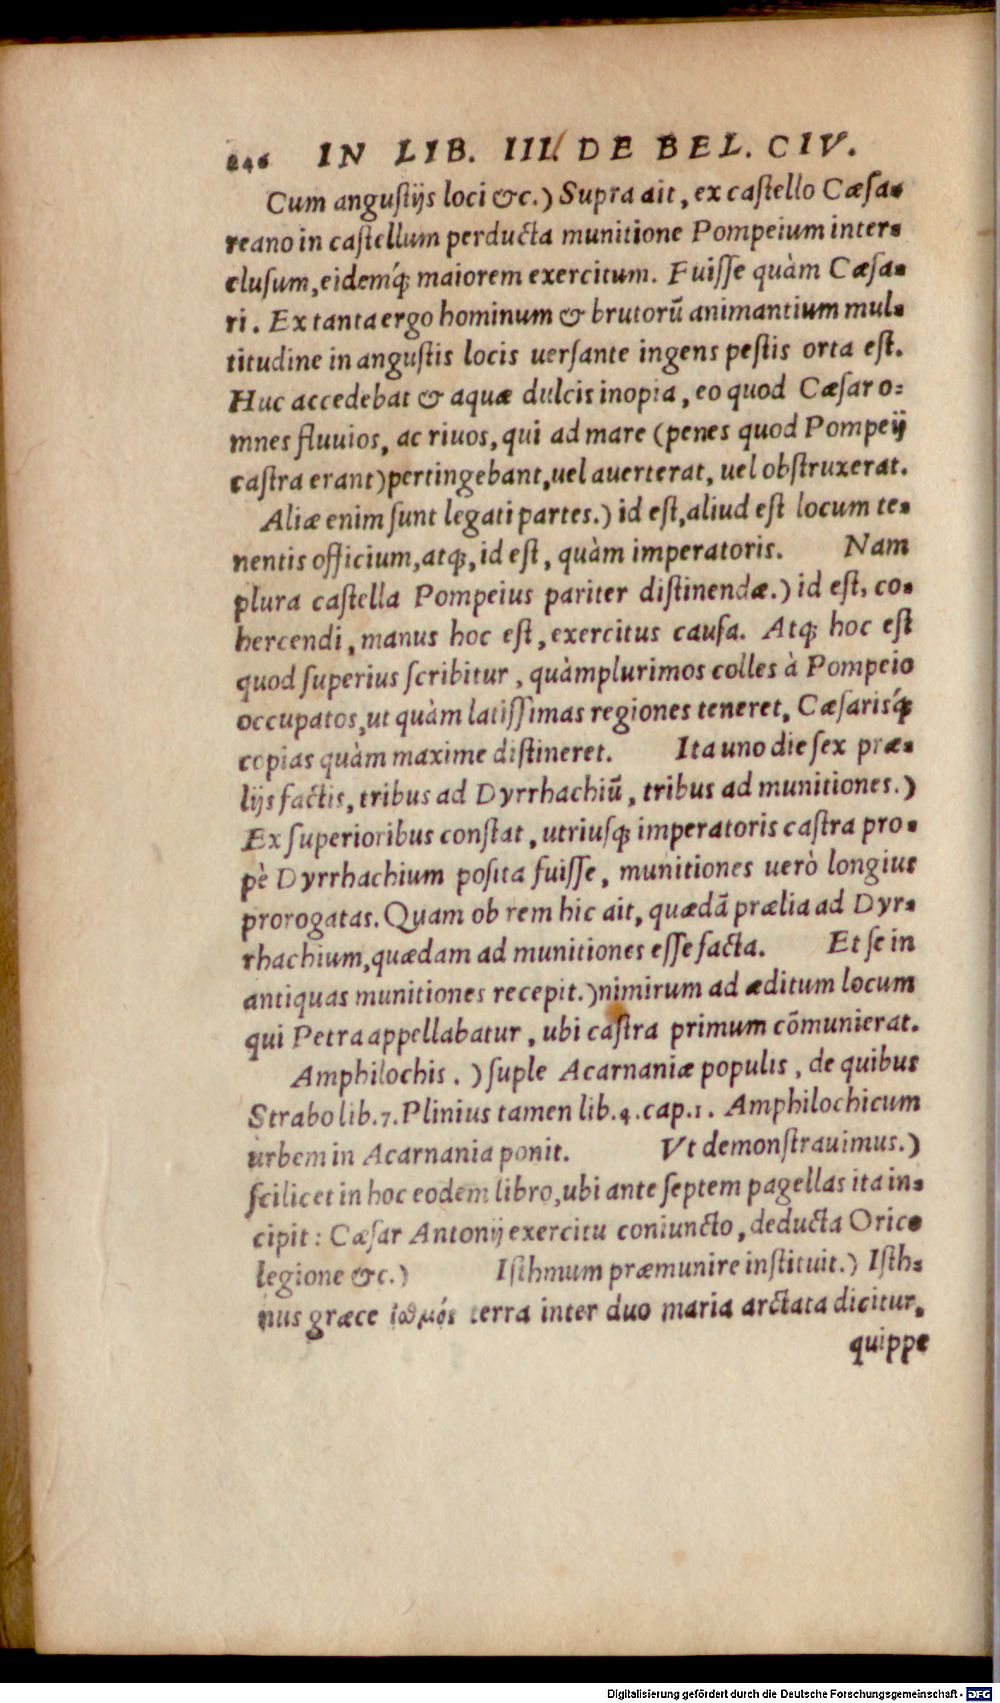 246 IN LIB. III. DE BEL. CIV.
Cum angustijs loci &c.) Supra ait, ex castello Cæsa-
reano in castellum perducta munitione Pompeium inter-
clusum, eidemq́; maiorem exercitum. Fuisse quàm Cæsa-
ri. Ex tanta ergo hominum & brutorũ animantium mul-
titudine in angustis locis uersante ingens pestis orta est.
Huc accedebat & aquæ dulcis inopia, eo quod Cæsar o-
mnes fluuios, ac riuos, qui ad mare (penes quod Pompeij
castra erant) pertingebant, uel auerterat, uel obstruxerat.
Aliæ enim sunt legati partes.) id est, aliud est locum te-
nentis officium, atq;, id est, quàm imperatoris. Nam
plura castella Pompeius pariter distinendæ.) id est, co-
hercendi, manus hoc est, exercitus causa. Atq; hoc est
quod superius scribitur, quàmplurimos colles à Pompeio
occupatos, ut quàm latissimas regiones teneret, Cæsarisq́;
copias quàm maxime distineret. Ita uno die sex præ-
lijs factis, tribus ad Dyrrhachiũ, tribus ad munitiones.)
Ex superioribus constat, utriusq; imperatoris castra pro-
pè Dyrrhachium posita fuisse, munitiones uerò longius
prorogatas. Quam ob rem hic ait, quædã prælia ad Dyr-
rhachium, quædam ad munitiones esse facta. Et se in
antiquas munitiones recepit.) nimirum ad æditum locum
qui Petra appellabatur, ubi castra primum cõmunierat.
Amphilochis.) suple Acarnaniæ populis, de quibus
Strabo lib. 7. Plinius tamen lib. 4. cap. 1. Amphilochicum
urbem in Acarnania ponit. Vt demonstrauimus.)
scilicet in hoc eodem libro, ubi ante septem pagellas ita in-
cipit: Cæsar Antonij exercitu coniuncto, deducta Orico
legione &c.) Isthmum præmunire instituit.) Isth-
mus græce ἰσθμός terra inter duo maria arctata dicitur,
quippe
Digitalisierung gefördert durch die Deutsche Forschungsgemeinschaft - DFG